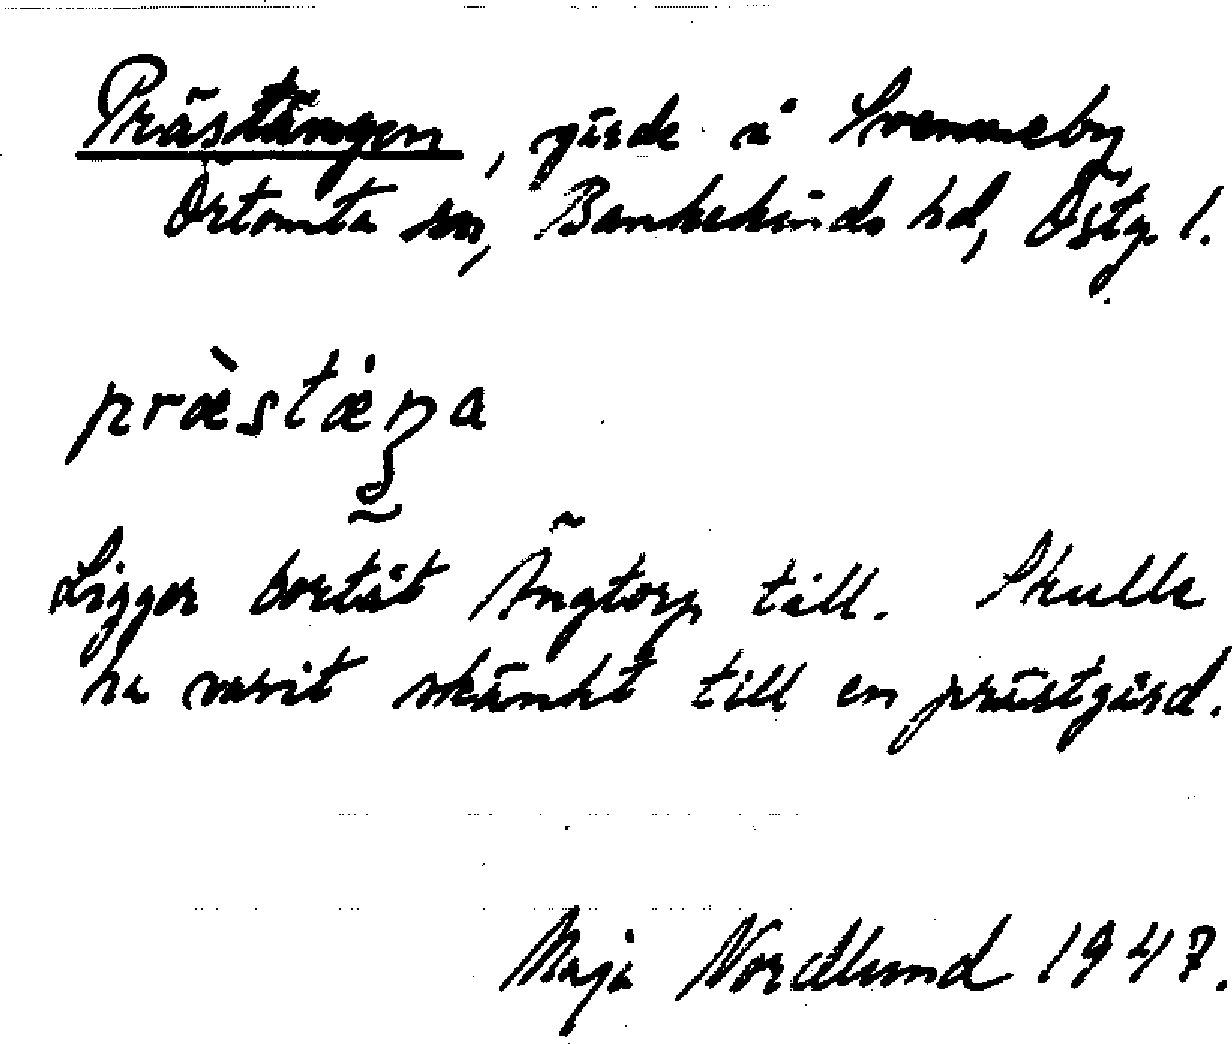 Prästängen, gärde å Svenneby
Örtomta sn, Bankekinds hd, Östg. l.
præ̀stæ̇ŋa
Ligger bortåt Ängtorp till. Skulle
ha varit skänkt till en prästgård.
Maja Nordlund 1947.